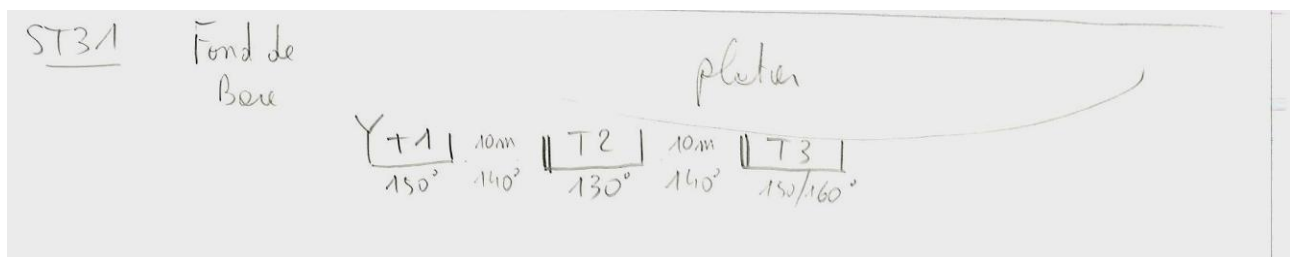 ST31 Fond de
Baie
platier
T1 10m T2 10m T3
150° 140° 130° 140° 150/160°